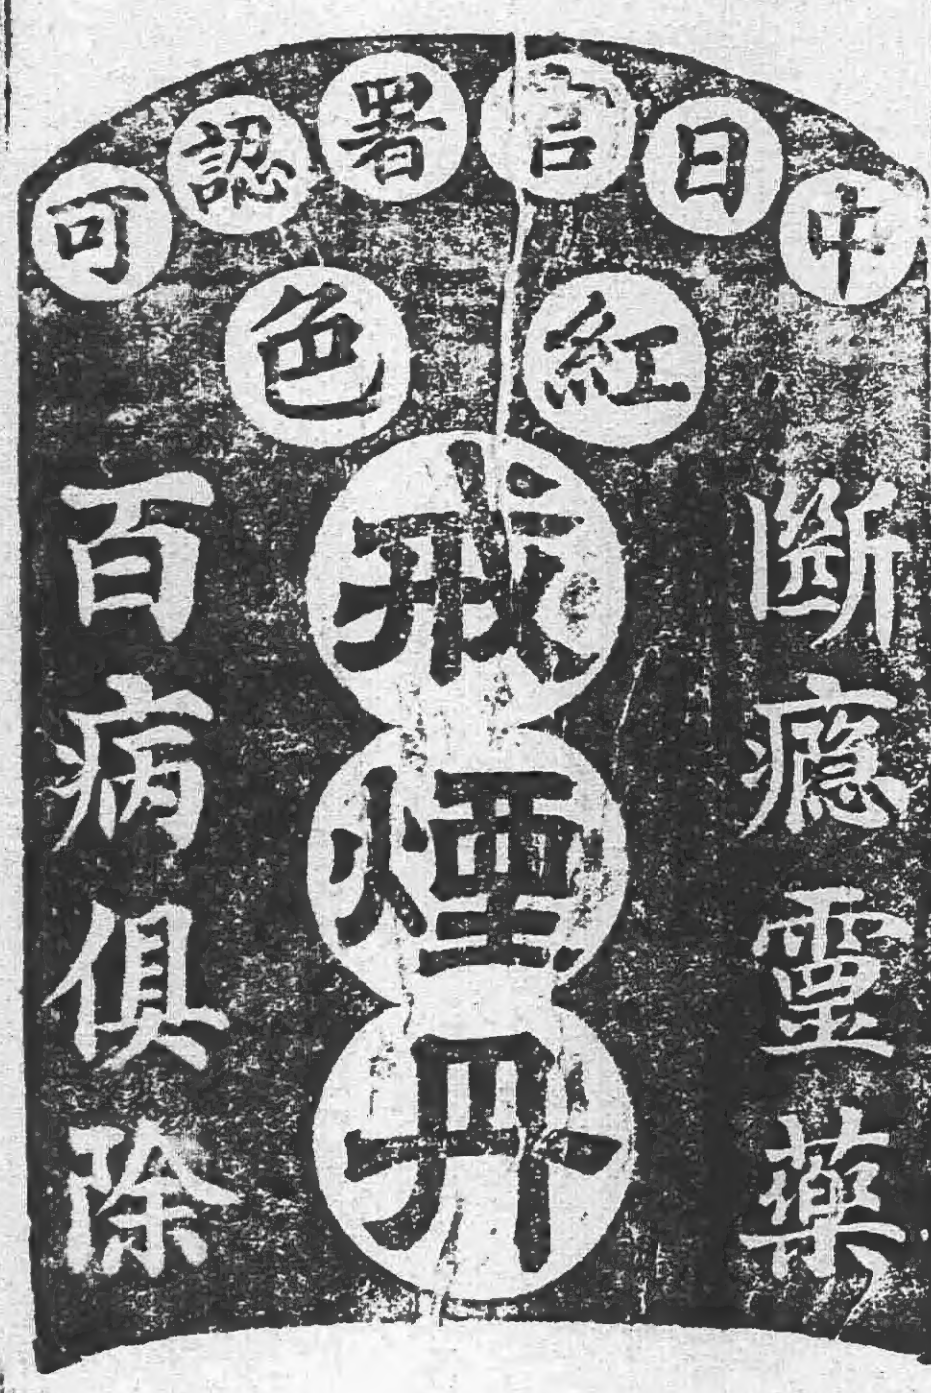 中日官署認可
紅色
戒煙丹
斷癮靈藥
百病俱除